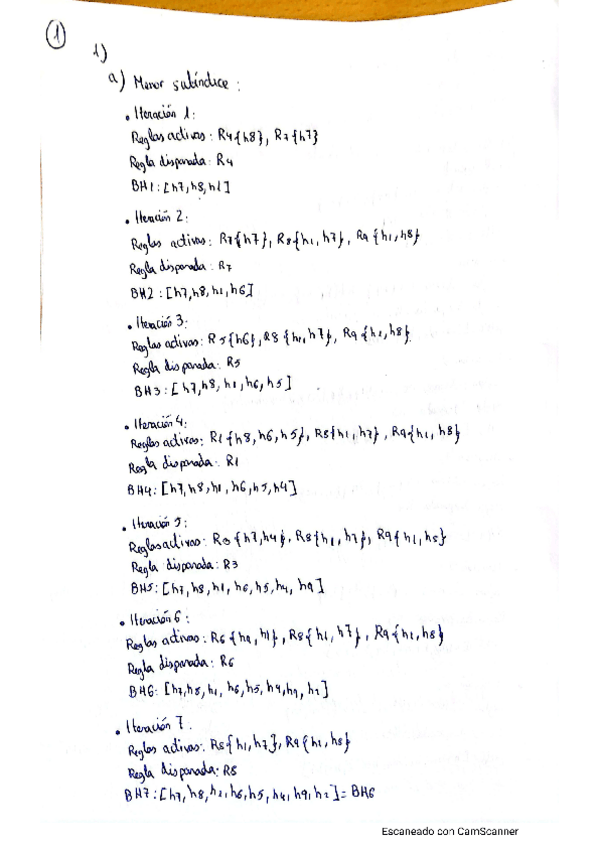 1
1)
a) Menor subíndice :
• Iteración 1:
Reglas activas : R4{h8}, R7{h7}
Regla disparada: R4
BH1 : [h7,h8,h1]
• Iteración 2:
Reglas activas : R7{h7}, R8{h1, h7}, R9 {h1,h8}
Regla disparada: R7
BH2 : [h7,h8,h1,h6]
• Iteración 3:
Reglas activas: R5{h6}, R8 {h1,h7}, R9 {h1,h8}
Regla disparada: R5
BH3 : [h7,h8, h1, h6, h5]
• Iteración 4:
Reglas activas: R1 {h8, h6, h5}, R8{h1, h7}, R9{h1, h8}
Regla disparada: R1
BH4: [h7, h8, h1, h6, h5, h4]
• Iteración 5:
Reglas activas: R3 {h7,h4}, R8{h1, h7}, R9{h1,h8}
Regla disparada: R3
BH5: [h7,h8,h1, h6, h5, h4, h9]
• Iteración 6 :
Reglas activas : R6 {h9, h1}, R8{h1, h7}, R9{h1,h8}
Regla disparada: R6
BH6: [h7,h8, h1, h6, h5, h4, h9, h2]
• Iteración 7 :
Reglas activas: R8{h1,h7}, R9{h1, h8}
Regla disparada: R8
BH7 : [h7, h8, h1, h6, h5, h4, h9, h2] = BH6
Escaneado con CamScanner